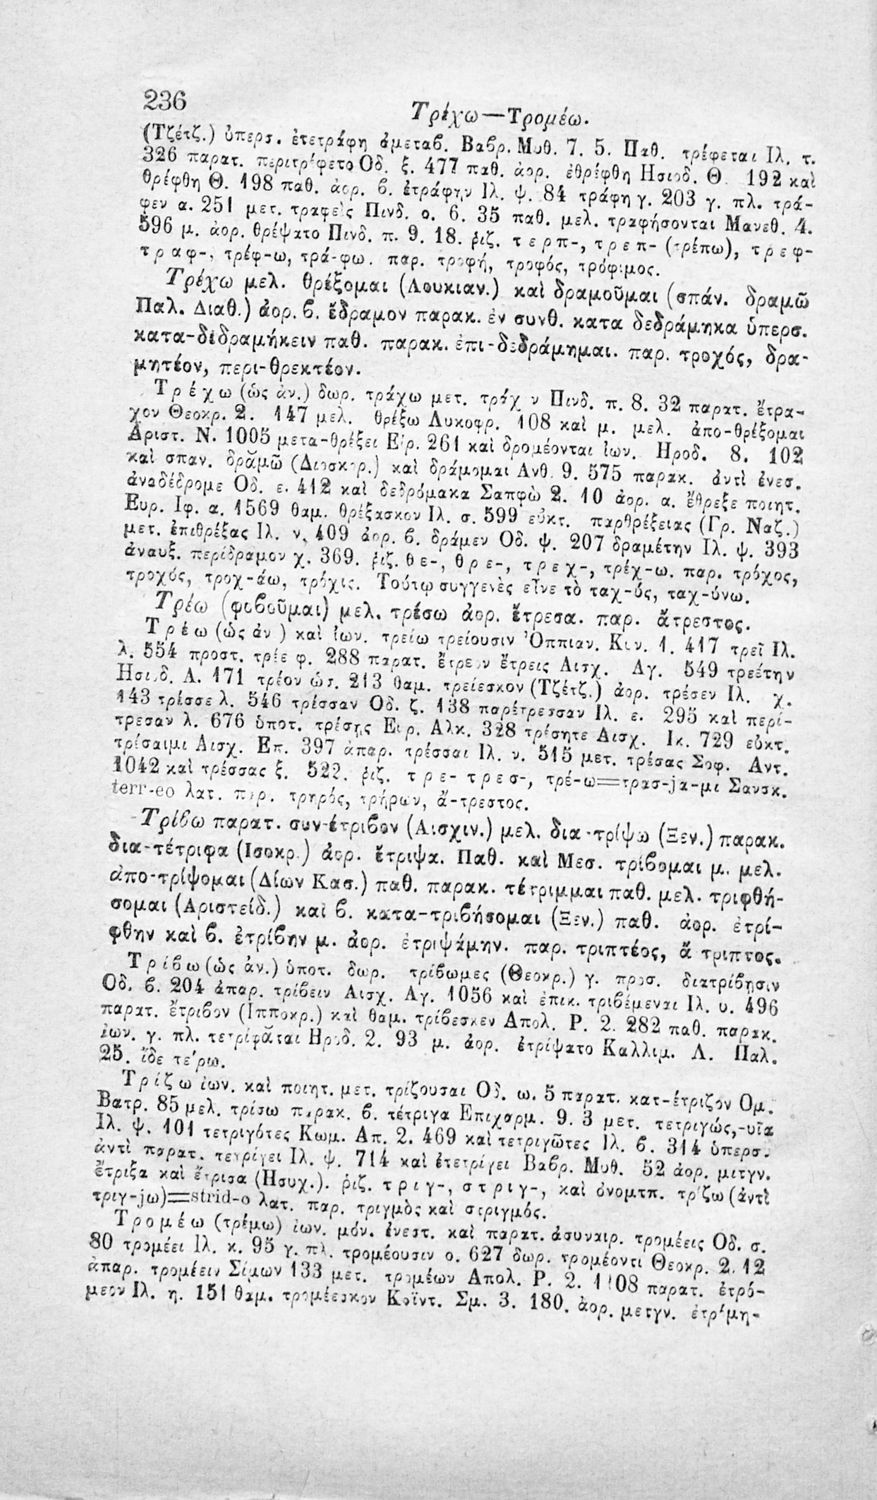 236
Τρέχω—Τρομέω.
(Τζέτζ.) ὑπερσ. ἐτετράφη ἀμεταβ. Βαβρ. Μυθ. 7. 5. Παθ. τρέφεται Ιλ. τ.
326 παρατ. περιτρέφετο Οδ. ξ. 477 παθ. ἀορ. ἐθρέφθη Ησιοδ. Θ. 192 καὶ
θρέφθη Θ. 198 παθ. ἀορ. β. ἐτράφην Ιλ. ψ. 84 τράφη γ. 203 γ. πλ. τρά-
φεν α. 251 μετ. τραφεὶς Πινδ. ο. 6. 35 παθ. μελ. τραφήσονται Μανεθ. 4.
596 μ. ἀορ. θρέψατο Πινδ. π. 9. 18. ῥιζ. τερπ-, τρεπ- (τρέπω), τρεφ-
τραφ-, τρέφ-ω, τρά-φω. παρ. τροφή, τροφός, τρόφιμος.
Τρέχω μελ. θρέξομαι (Λουκιαν.) καὶ δραμοῦμαι (σπάν. δραμῶ
Παλ. Διαθ.) ἀορ. β. ἔδραμον παρακ. ἐν συνθ. κατα δεδράμηκα ὑπερσ.
κατα-δεδραμήκειν παθ. παρακ. ἐπι-δεδράμημαι. παρ. τροχός, δρα-
μητέον, περι-θρεκτέον.
Τρέχω (ὡς ἀν.) δωρ. τράχω μετ. τράχων Πινδ. π. 8. 32 παρατ. ἔτρα-
χον Θεοκρ. 2. 147 μελ. θρέξω Λυκοφρ. 108 καὶ μ. μελ. ἀπο-θρέξομαι
Αριστ. Ν. 1005 μετα-θρέξει Εὐρ. 261 καὶ δρομέονται ἰων. Ηροδ. 8. 102
καὶ σπαν. δραμῶ (Διοσκορ.) καὶ δράμομαι Ανθ. 9. 575 παρακ. ἀντὶ ἐνεσ.
ἀναδέδρομε Οδ. ε. 412 καὶ δεδρόμακα Σαπφὼ 2. 10 ἀορ. α. ἔθρεξε ποιητ.
Ευρ. Ιφ. α. 1569 θαμ. θρέξασκον Ιλ. σ. 599 εὐκτ. παρθρέξειας (Γρ. Ναζ.)
μετ. ἐπιθρέξας Ιλ. ν. 409 ἀορ. β. δράμεν Οδ. ψ. 207 δραμέτην Ιλ. ψ. 393
ἀναυξ. περίδραμον χ. 369. ῥιζ. θε-, θρε-, τρεχ-, τρέχ-ω. παρ. τρόχος,
τροχός, τροχ-άω, τρόχις. Τούτῳ συγγενὲς εἶνε τὸ ταχ-ύς, ταχ-ύνω.
Τρέω (φοβοῦμαι) μελ. τρέσω ἀορ. ἔτρεσα. παρ. ἄτρεστος.
Τρέω (ὡς ἀν) καὶ ἰων. τρείω τρείουσιν Ὀππιαν. Κιν. 1. 417 τρεῖ Ιλ.
λ. 554 προστ. τρέε φ. 288 παρατ. ἔτρεον ἔτρεις Αισχ. Αγ. 549 τρεέτην
Ησιοδ. Α. 171 τρέον ὡσ. 213 θαμ. τρείεσκον (Τζέτζ.) ἀορ. τρέσεν Ιλ. χ.
143 τρέσσε λ. 546 τρέσσαν Οδ. ζ. 138 παρέτρεσσαν Ιλ. ε. 295 καὶ περί-
τρεσαν λ. 676 ὑποτ. τρέσῃς Ευρ. Αλκ. 328 τρέσητε Αισχ. Ικ. 729 εὐκτ.
τρέσαιμι Αισχ. Επ. 397 ἀπαρ. τρέσσαι Ιλ. ν. 515 μετ. τρέσας Σοφ. Αντ.
1042 καὶ τρέσσας ξ. 522. ῥιζ. τρε- τρεσ-, τρέ-ω=τρασ-ja-μι Σανσκ.
terr-eo λατ. παρ. τρηρός, τρήρων, ἄ-τρεστος.
Τρίβω παρατ. συν-έτριβον (Αισχιν.) μελ. δια-τρίψω (Ξεν.) παρακ.
δια-τέτριφα (Ισοκρ.) ἀορ. ἔτριψα. Παθ. καὶ Μεσ. τρίβομαι μ. μελ.
ἀπο-τρίψομαι (Δίων Κασ.) παθ. παρακ. τέτριμμαι παθ. μελ. τριφθή-
σομαι (Αριστείδ.) καὶ β. κατα-τριβήσομαι (Ξεν.) παθ. ἀορ. ἐτρί-
φθην καὶ β. ἐτρίβην μ. ἀορ. ἐτριψάμην. παρ. τριπτέος, ἄ τριπτος.
Τρίβω (ὡς ἀν.) ὑποτ. δωρ. τρίβωμες (Θεοκρ.) γ. προσ. διατρίβησιν
Οδ. β. 204 ἀπαρ. τρίβειν Αισχ. Αγ. 1056 καὶ ἐπικ. τριβέμεναι Ιλ. υ. 496
παρατ. ἔτριβον (Ιπποκρ.) καὶ θαμ. τρίβεσκεν Απολ. Ρ. 2. 282 παθ. παρακ.
ἰων. γ. πλ. τετρίφαται Ηροδ. 2. 93 μ. ἀορ. ἐτρίψατο Καλλιμ. Λ. Παλ.
25. ἴδε τείρω.
Τρίζω ἰων. καὶ ποιητ. μετ. τρίζουσαι Οδ. ω. 5 παρατ. κατ-έτριζον Ομ.
Βατρ. 85 μελ. τρίσω παρακ. β. τέτριγα Επιχαρμ. 9. 3 μετ. τετριγώς,-υῖα
Ιλ. ψ. 101 τετριγότες Κωμ. Απ. 2. 469 καὶ τετριγῶτες Ιλ. β. 314 ὑπερσ.
ἀντὶ παρατ. τετρίγει Ιλ. ψ. 714 καὶ ἐτετρίγει Βαβρ. Μυθ. 52 ἀορ. μετγν.
ἔτριξα καὶ ἔτρισα (Ησυχ.). ῥιζ. τριγ-, στριγ-, καὶ ὀνομτπ. τρίζω (ἀντὶ
τριγ-jω)=strid-o λατ. παρ. τριγμὸς καὶ στριγμός.
Τρομέω (τρέμω) ἰων. μόν. ἐνεστ. καὶ παρατ. ἀσυναιρ. τρομέεις Οδ. σ.
80 τρομέει Ιλ. κ. 95 γ. πλ. τρομέουσιν ο. 627 δωρ. τρομέοντι Θεοκρ. 2. 12
ἀπαρ. τρομέειν Σίμων 133 μετ. τρομέων Απολ. Ρ. 2. 1108 παρατ. ἐτρό-
μεον Ιλ. η. 151 θαμ. τρομέεσκον Κοΐντ. Σμ. 3. 180. ἀορ. μετγν. ἐτρίμη-